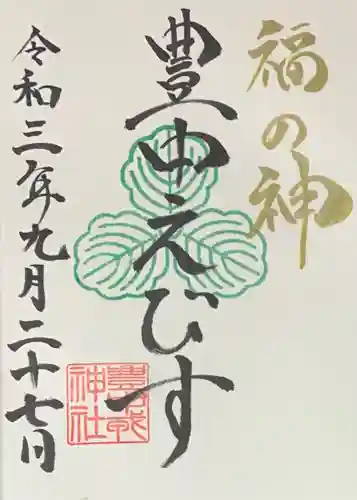 福の神
豊中えびす
令和三年九月二十七日
豊中戎神社